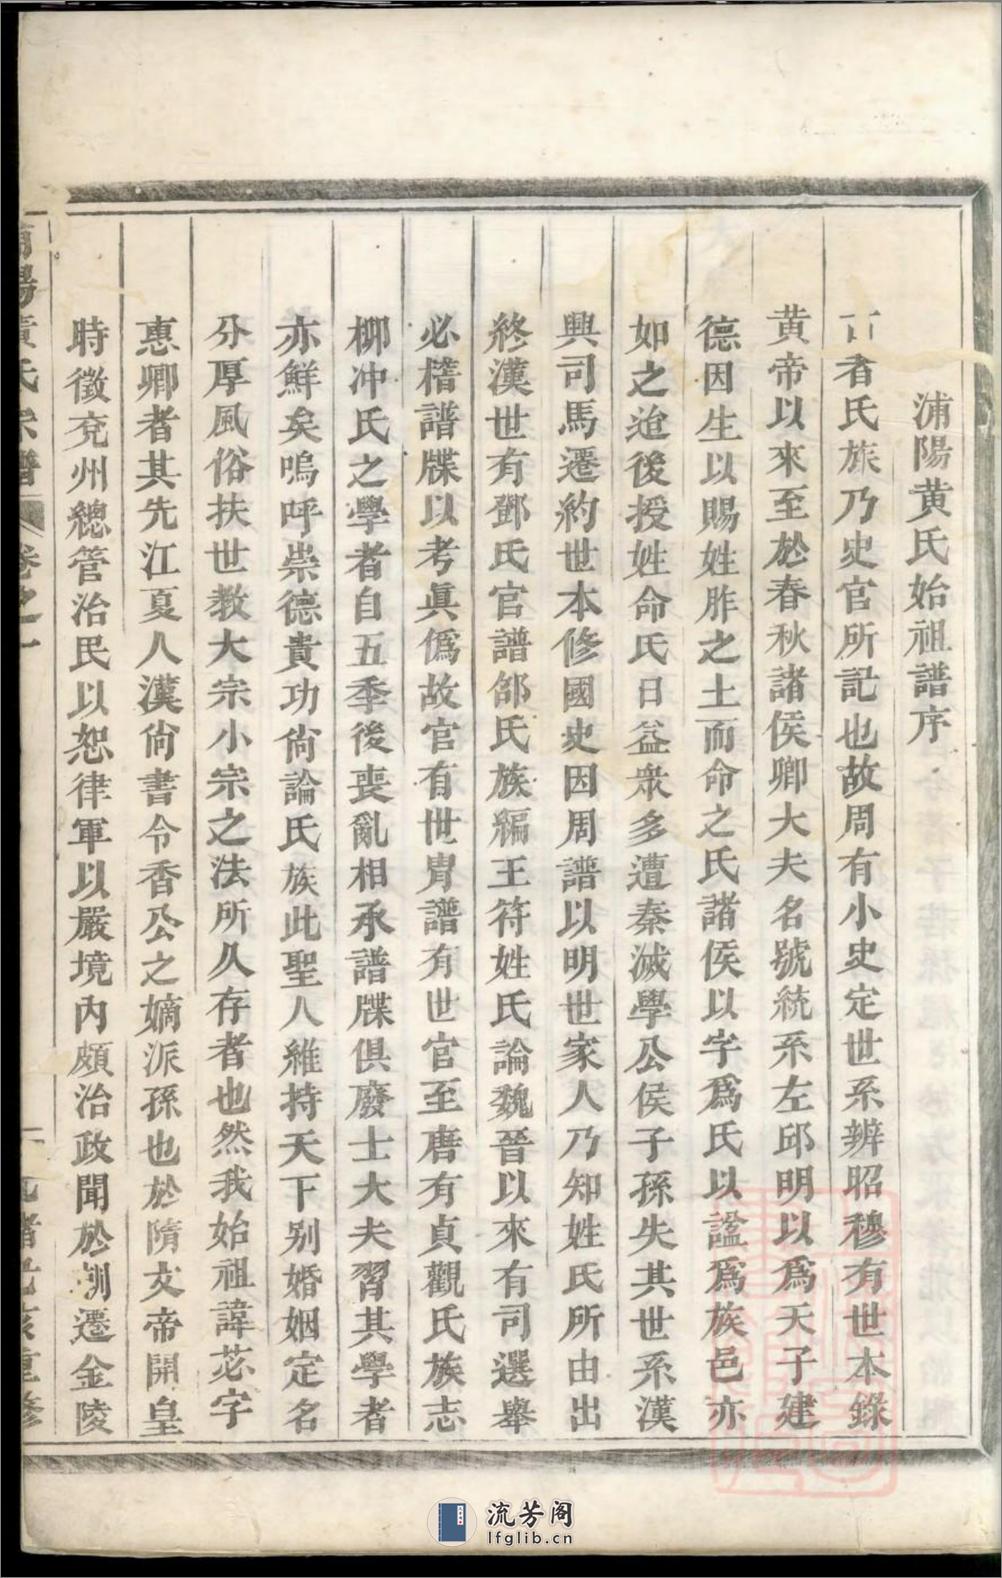 浦陽黄氏始祖譜序
古者氏族乃史官所記也故周有小史定世系辨昭穆有世本錄
黄帝以來至於春秋諸侯卿大夫名號統系左邱明以爲天子建
德因生以賜姓胙之土而命之氏諸侯以字爲氏以謚爲族邑亦
如之迨後授姓命氏日益衆多遭秦滅學公侯子孫失其世系漢
興司馬遷約世本修國史因周譜以明世家人乃知姓氏所由出
終漢世有鄧氏官譜郃氏族編王符姓氏論魏晉以來有司選舉
必稽譜牒以考眞僞故官有世胄譜有世官至唐有貞觀氏族志
柳冲氏之學者自五季後喪亂相承譜牒俱廢士大夫習其學者
亦鮮矣嗚呼崇德貴功尙論氏族此聖人維持天下别婚姻定名
分厚風俗扶世教大宗小宗之法所久存者也然我始祖諱苾字
惠卿者其先江夏人漢尙書令香公之嫡派孫也於隋文帝開皇
時徵兗州總管治民以恕律軍以嚴境內頗治政聞於朝遷金陵
陽黃氏宗譜 卷之一
重修
流芳阁
lfglib.cn